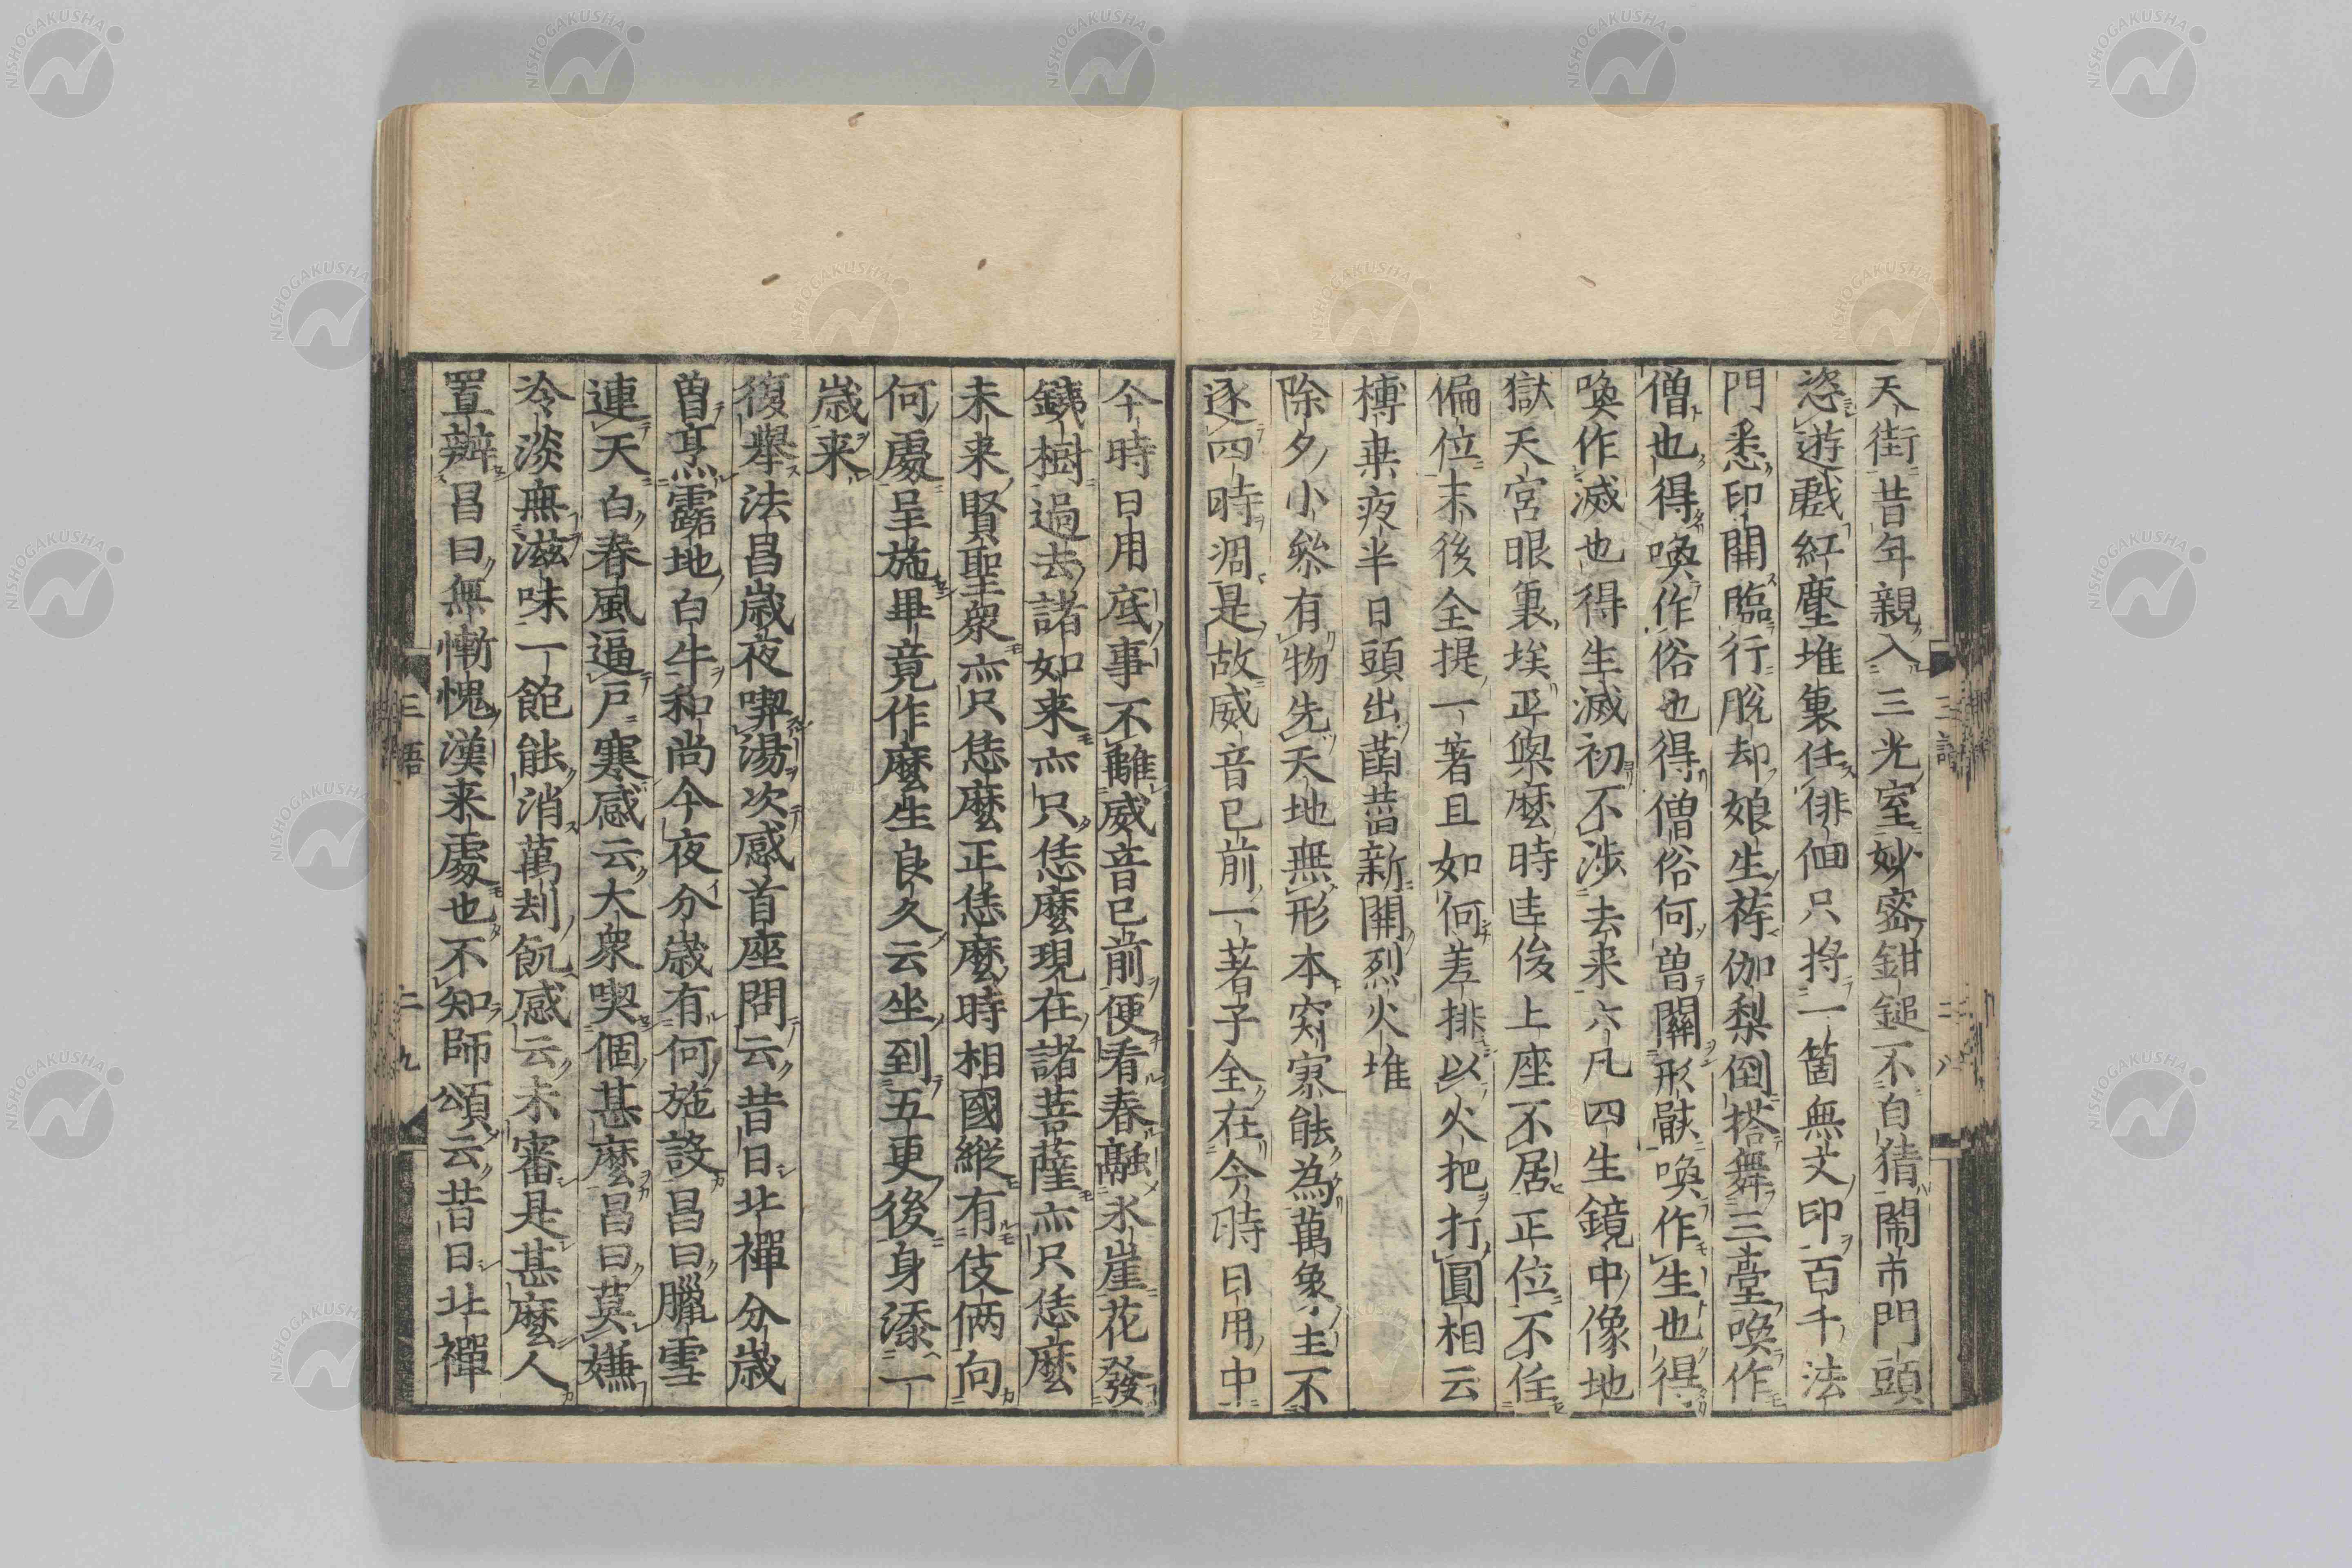 天街昔年親入三光室妙密鉗鎚不自猜鬧市門頭
恣遊戲紅塵堆裏任徘徊只将一箇無文印百千法
門悉印開臨行脫却娘生袴伽梨倒搭舞三臺喚作
僧也得喚作俗也得僧俗何曽關形骸喚作生也得
喚作滅也得生滅初不涉去来六凡四生鏡中像地
獄天宮眼裏埃正與麼時圭俊上座不居正位不住
偏位末後全提一著且如何差排以火把打圓相云
榑桒夜半日頭出菡萏新開烈火堆
除夕小叅有物先天地無形本寂寥能為萬象主不
逐四時凋是故威音已前一著子全在今時日用中
今時日用底事不離威音已前便看春融氷崖花發
鐵樹過去諸如来亦只恁麼現在諸菩薩亦只恁麼
未来賢聖衆亦只恁麼正恁麼時相國縱有伎倆向
何處呈施畢竟作麼生良久云坐到五更後身添一
歳来
復舉法昌歳夜喫湯次感首座問云昔日北禪分歳
曽烹露地白牛和尚今夜分歳有何施設昌曰臘雪
連天白春風逼戸寒感云大衆喫個甚麼昌曰莫嫌
冷淡無滋味一飽能消萬刧飢感云未審是甚麼人
置辨昌曰無慚愧漢来處也不知師頌云昔日北禪
三語
二九
NISHOGAKUSHA